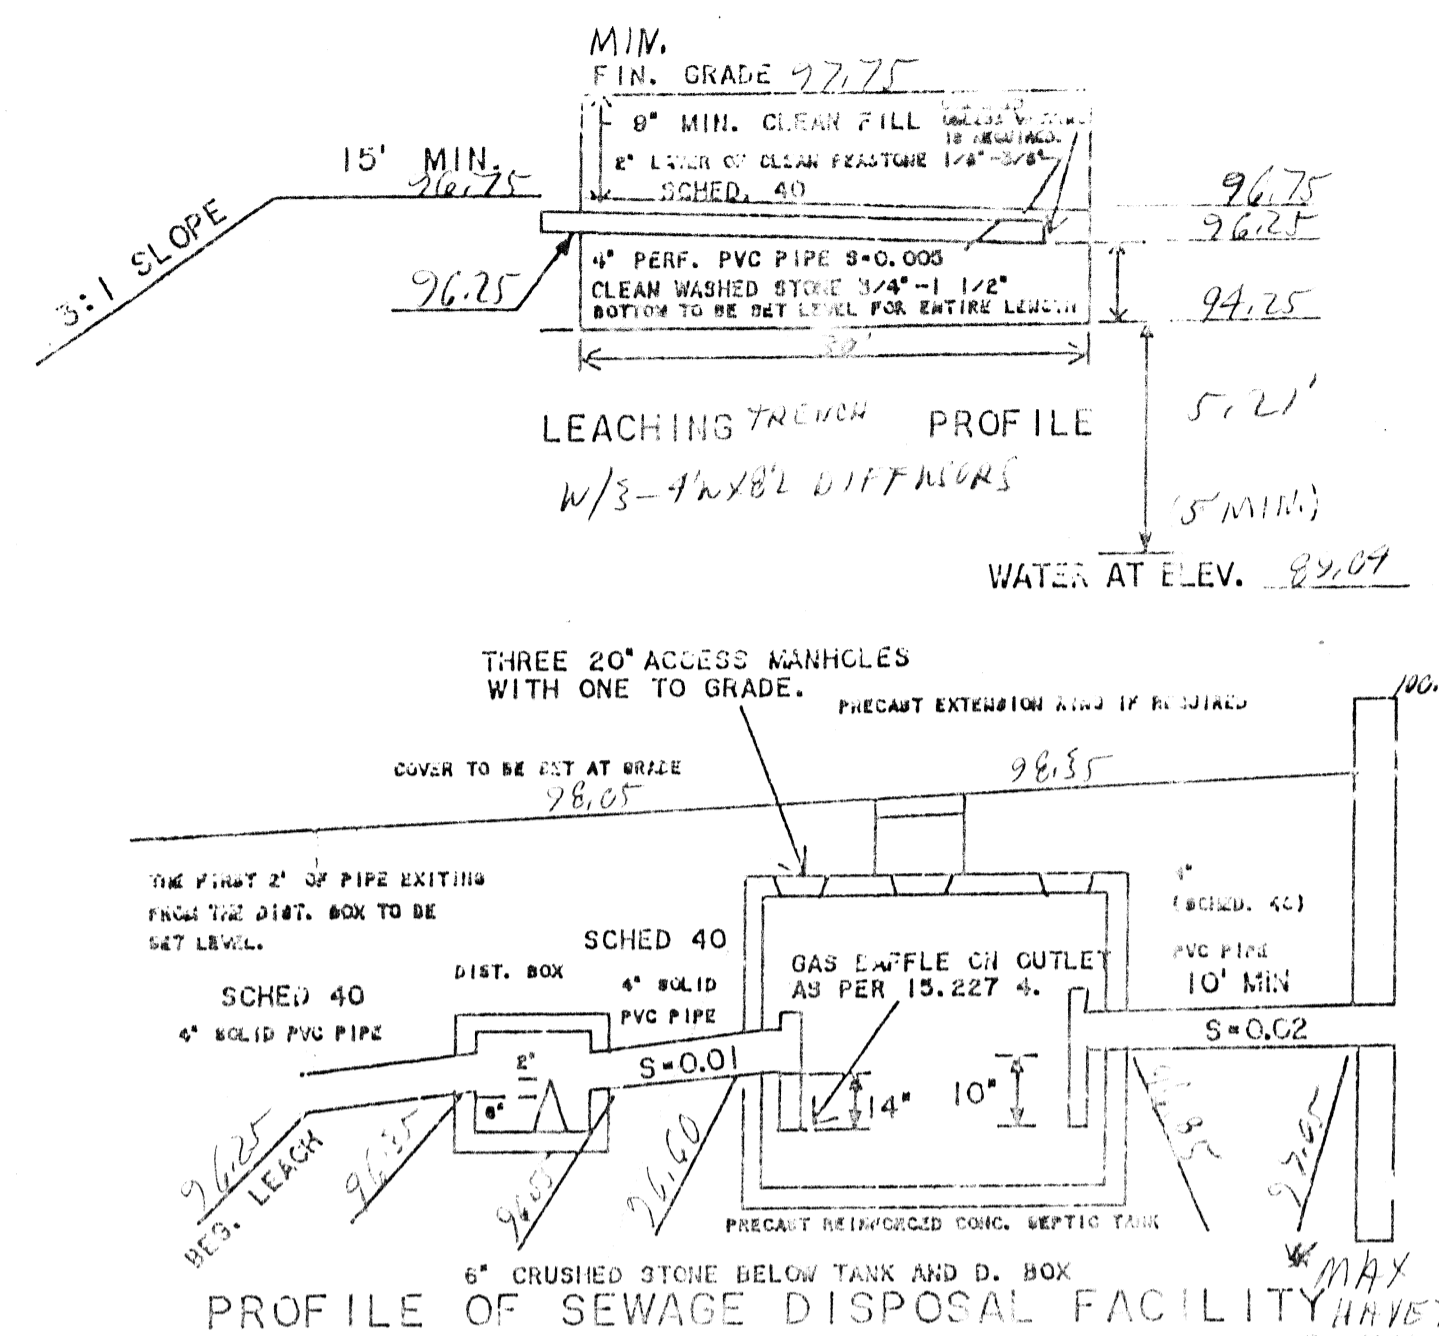 MIN.
FIN. GRADE 97.75
9" MIN. CLEAN FILL
IS REQUIRED.
2" LAYER OF CLEAN PEASTONE 1/8"-3/8"
SCHED. 40
15' MIN.
96.75
3:1 SLOPE
96.75
96.25
96.25
4" PERF. PVC PIPE S=0.005
CLEAN WASHED STONE 3/4"-1 1/2"
BOTTOM TO BE SET LEVEL FOR ENTIRE LENGTH
94.25
30'
5.21'
LEACHING TRENCH PROFILE
W/3-4'WX8'L DIFFUSORS
(5 MIN.)
WATER AT ELEV. 89.04
THREE 20" ACCESS MANHOLES
WITH ONE TO GRADE.
PRECAST EXTENSION RING IF REQUIRED
100.
COVER TO BE SET AT GRADE
98.05
98.35
THE FIRST 2' OF PIPE EXITING
FROM THE DIST. BOX TO BE
SET LEVEL.
4"
(SCHED. 40)
PVC PIPE
10' MIN
SCHED 40
4" SOLID
PVC PIPE
GAS BAFFLE ON OUTLET
AS PER 15.227 4.
DIST. BOX
SCHED 40
4" SOLID PVC PIPE
S=0.01
S=0.02
2"
6"
14"
10"
96.25
BEG. LEACH
96.35
96.60
96.85
97.05
PRECAST REINFORCED CONC. SEPTIC TANK
6" CRUSHED STONE BELOW TANK AND D. BOX
PROFILE OF SEWAGE DISPOSAL FACILITY
* MAX
HAVE